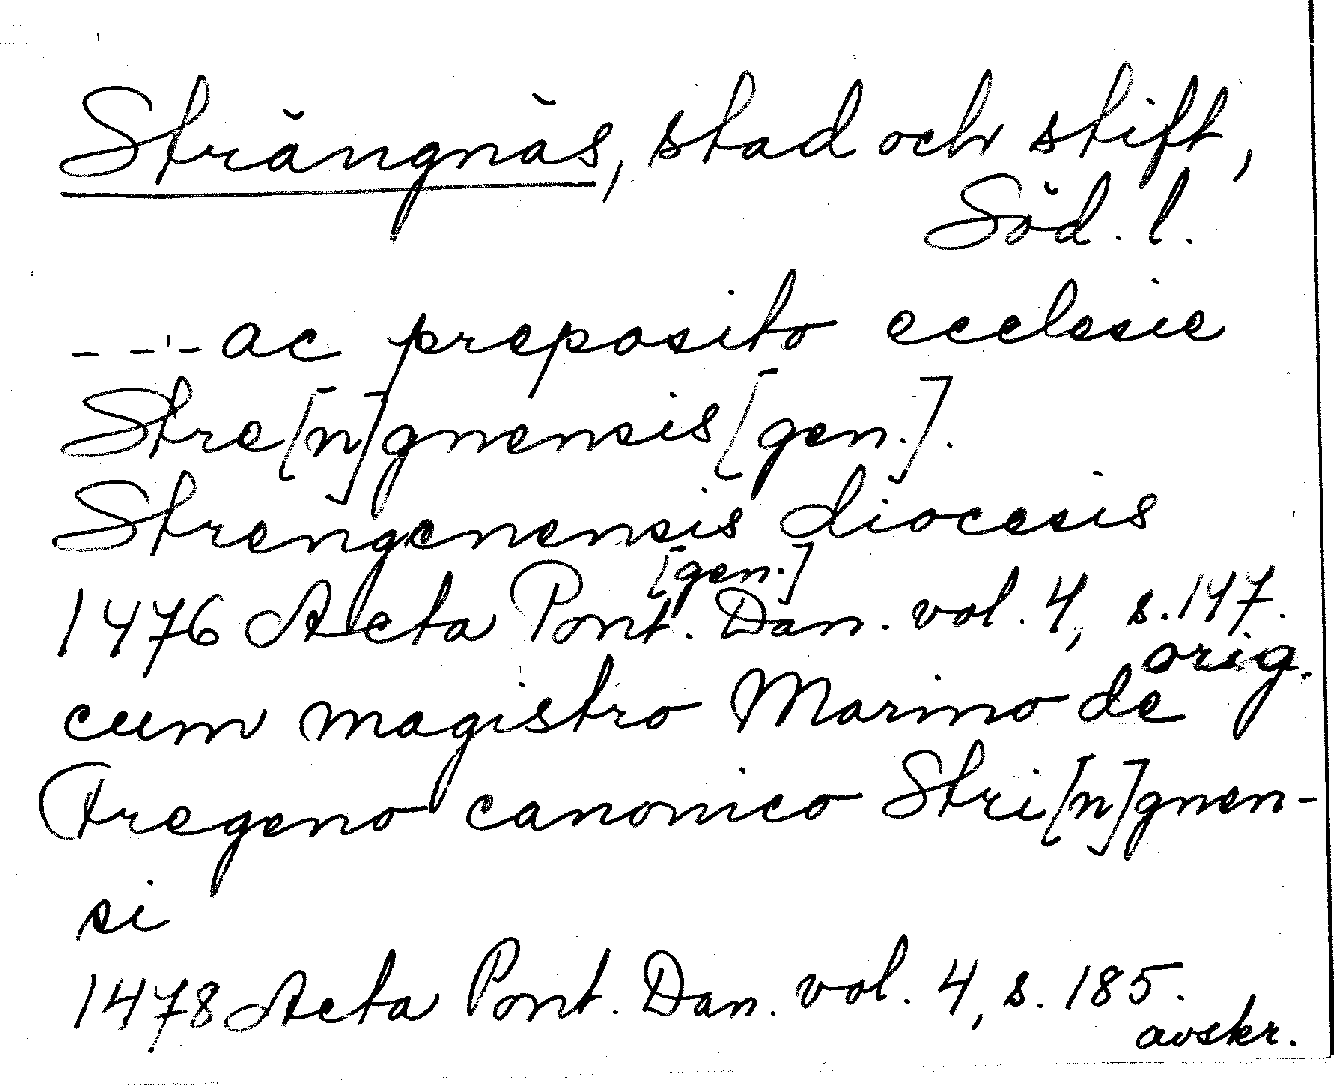 Strängnäs, stad och stift,
Söd. l.
- - - ac preposito ecclesie
Stre[n]gnensis [gen.].
Strengenensis diocesis
[gen.]
1476 Acta Pont. Dan. vol. 4, s. 147.
orig.
cum magistro Marino de
Fregeno canonico Stri[n]gnen-
si
1478 Acta Pont. Dan. vol. 4, s. 185.
avskr.